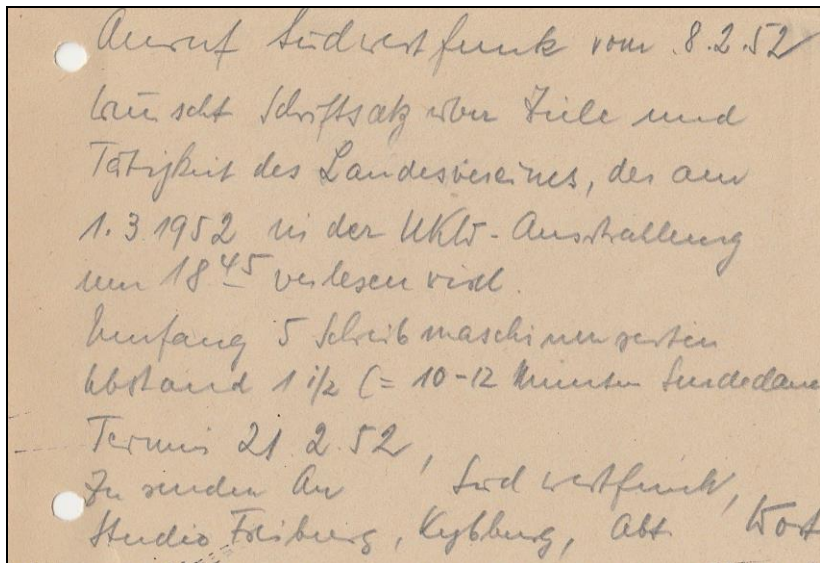 Anruf Südwestfunk vom 8.2.52
wünscht Schriftsatz über Ziele und
Tätigkeit des Landesvereines, der am
1.3.1952 in der UKW-Ausstrahlung
um 18 45 verlesen wird.
Umfang 5 Schreibmaschinenseiten
Abstand 1 1/2 (= 10-12 Minuten Sendedauer
Termin 21.2.52,
Zu senden an Südwestfunk,
Studio Freiburg, Kyburg, Abt. Wort